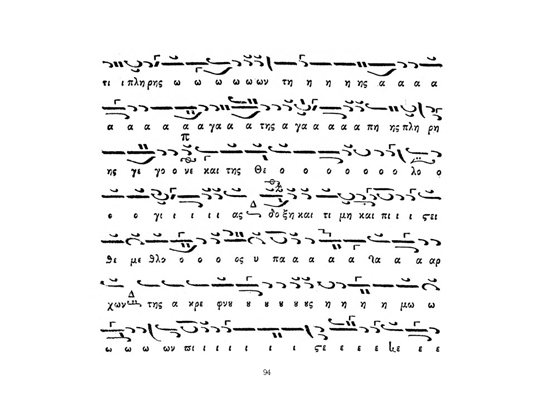 τι ι πλη ρης ω ω ω ω ω ων τη η η η ης α α α α
α α α α α α γα α α της α γα α α α α πη ης πλη ρη
ης γε γο ο νε και της Θε ο ο ο ο ο ο ο λο ο
ο ο γι ι ι ι ι ας δο ξη και τι μη και πι ι ι ςει
θε με θλο ο ο ο ος υ πα α α α α α α α α αρ
χων της α κρε φνυ ȣ ȣ ȣ ȣ ȣς η η η η μω ω
ω ω ω ων πι ι ι ι ι ι ι ςε ε ε ε ε ε
94